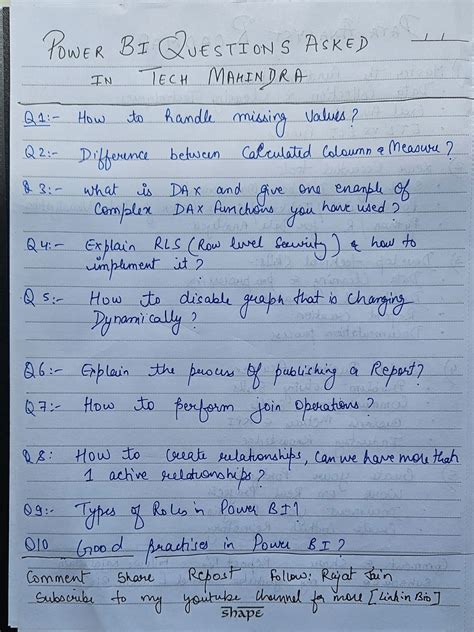 Power BI Questions Asked
in Tech Mahindra
Q1:- How to handle missing values?
Q2:- Difference between Calculated Coloumn & Measure?
Q3:- what is DAX and give one example of
complex DAX functions you have used?
Q4:- Explain RLS (Row level Security) & how to
implement it?
Q5:- How to disable graph that is changing
Dynamically?
Q6:- Explain the process of publishing a Report?
Q7:- How to perform join operations?
Q8: How to create relationships, Can we have more than
1 active relationships?
Q9:- Types of Roles in Power BI?
Q10 Good practises in Power BI?
Comment Share Repost Follow: Rajat Jain
Subscribe to my youtube channel for more [Link in Bio]
shape